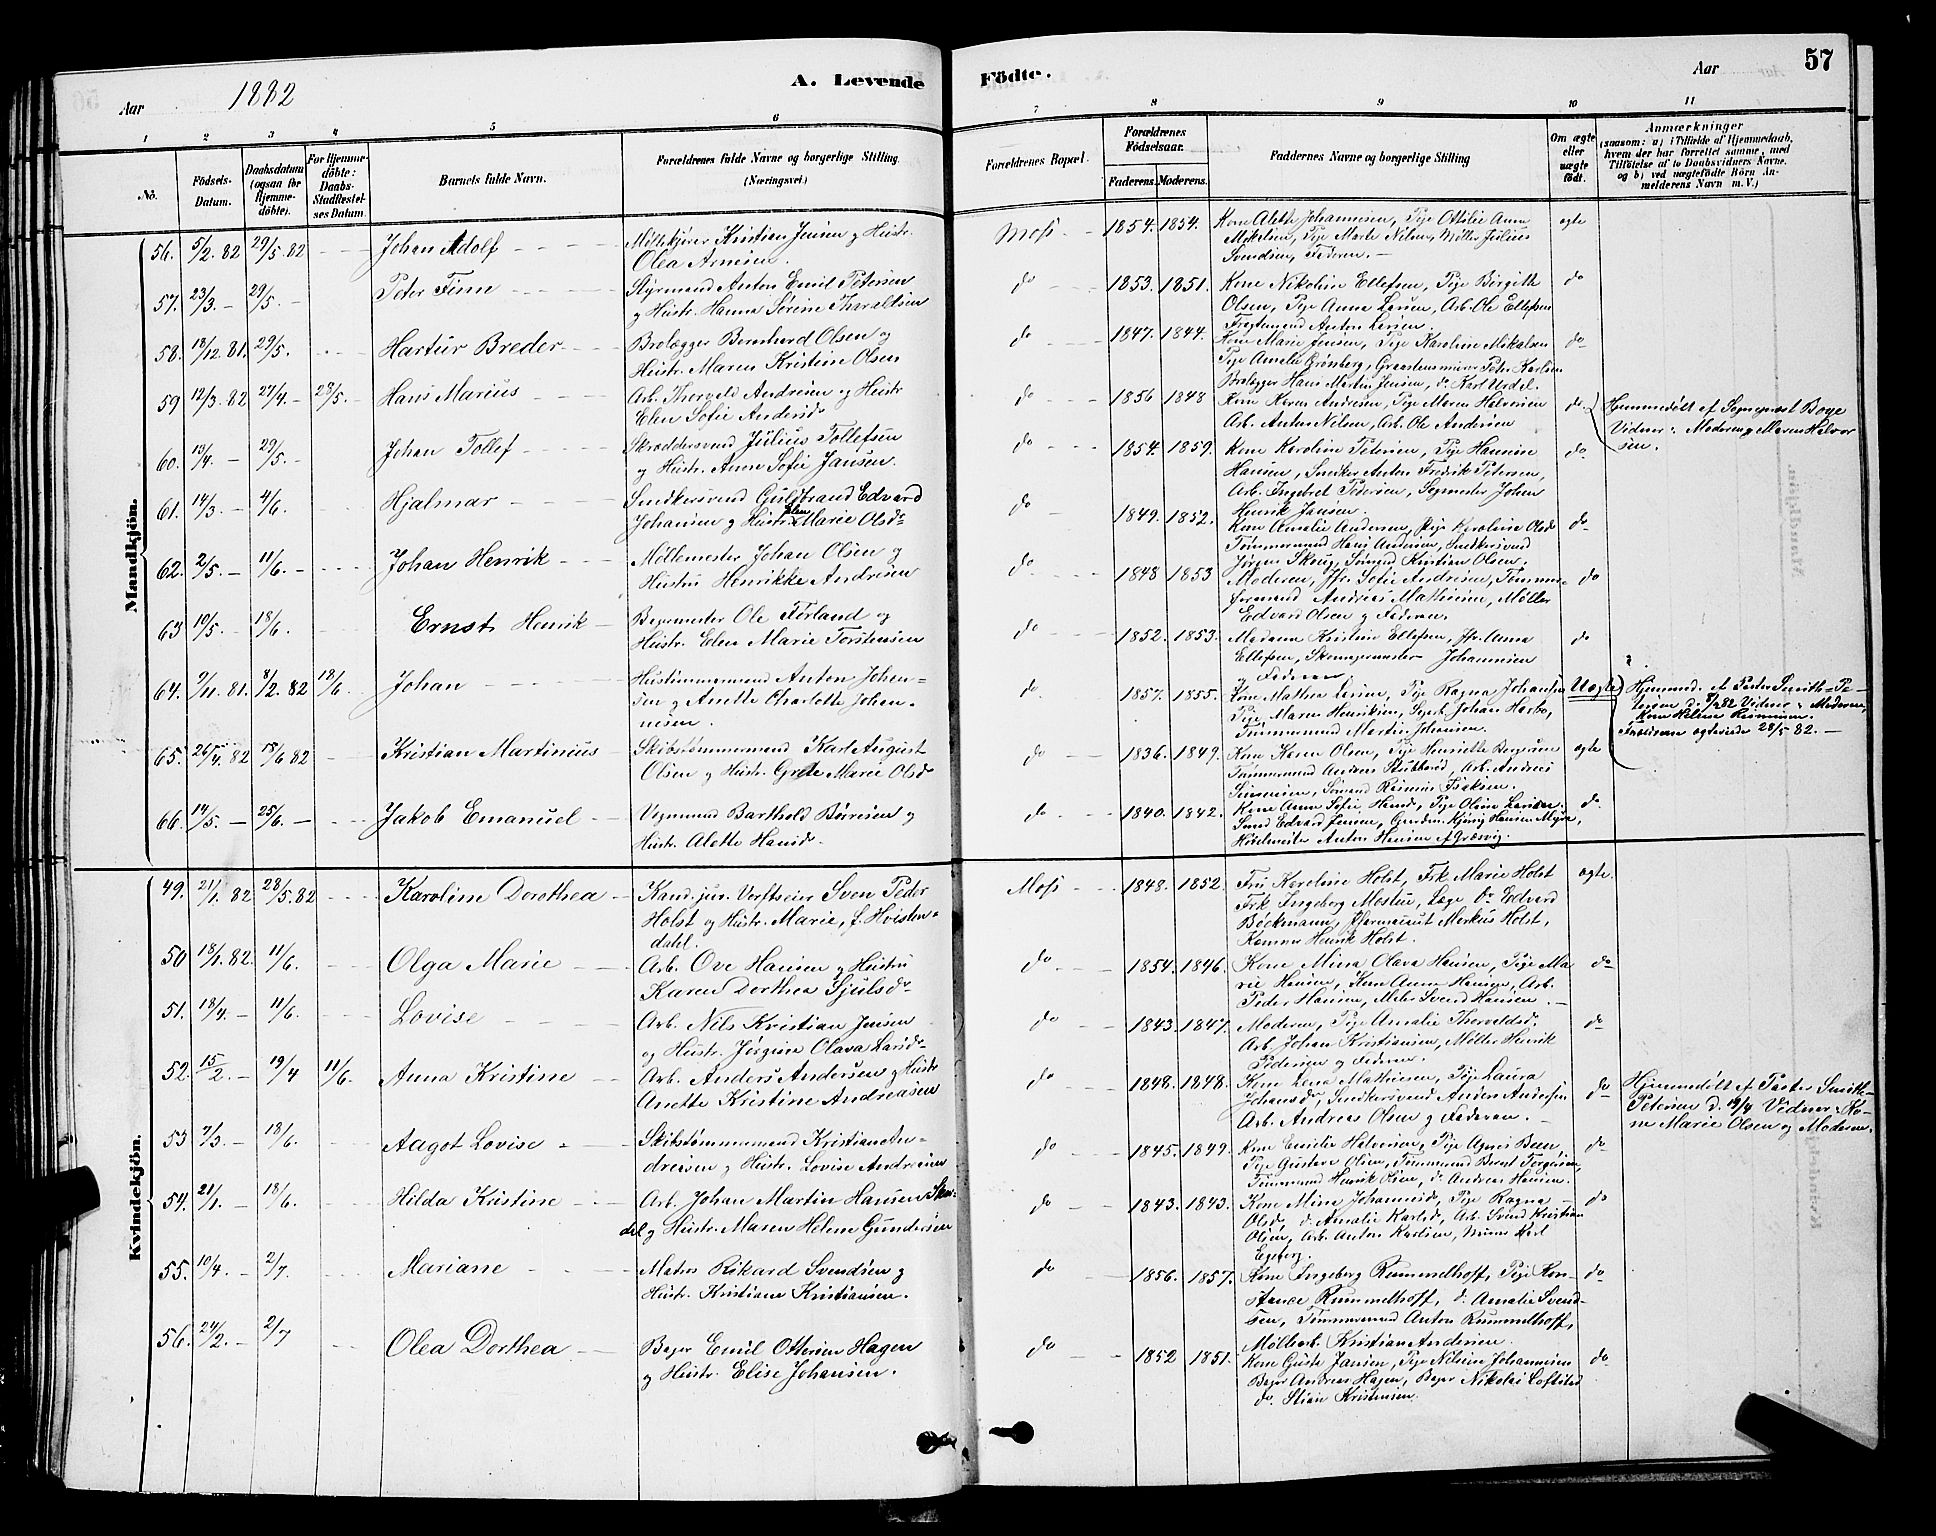 Aar 1882
A. Levende
Födte.
Aar
57
1 2 3 4 5 6 7 8 9 10 11
No.
Födsels-Datum.
Daabsdatum (ogsaa for Hjemmedöbte).
For Hjemmedöbte: Daabs-Stadfestelses Datum.
Barnets fulde Navn.
Forældrenes fulde Navne og borgerlige Stilling. (Næringsvei.)
Forældrenes Bopæl.
Forældrenes Födselsaar.
Faderens. Moderens.
Faddernes Navne og borgerlige Stilling
Om ægte eller uægte födt.
Anmærkninger
(saasom: a) i Tilfælde af Hjemmedaab, hvem der har forrettet samme, med Tilföielse af to Daabsvidners Navne, og b) ved uægtefödte Börn Anmelderens Navn m. V.)
Mandkjön.
56. 5/2 82 29/5 82 Johan Adolf Møllekjører Kristian Jensen og Hustr. Olea Arnesen. Moss 1854. 1854. Kone Alette Johannesen, Pige Ottilie Anne Mikelsen, Pige Marte Nilsen, Møller Julius Svendsen, Faderen. ægte
57. 23/3 29/5 Peter Finne Styrmand Anton Emil Petersen og Hustr. Hanna Sørine Thoraltsen do 1853. 1851. Kone Nikoline Ellefsen, Pige Birgith Olsen, Pige Anna Larsen, Arb. Ole Ellefsen Fragtemand Anton Larsen. do
58. 18/12 81. 29/5. Hartur Breder Brolægger Bernherd Olsen og Hustr. Maren Kristine Olsen do 1847. 1844. Kone Marie Jensen, Pige Karoline Mikalsen Pige Amalie Grönberg, Graastensmurer Peter Karlsen Brolægger Hans Martin Jensen, do Karl Urdal. do
59 12/3. 82 27/4. 28/5. Hans Marius Arb. Thorvald Andresen og Hustr. Elen Sofie Andersd. do 1856 1848 Kone Karen Andersen, Pige Maren Halvorsen Arb. Anton Nilsen, Arb. Ole Andersen do. Hjemmedöbt af Sogneprest Boye Vidner: Moderen og Maren Halvorsen.
60. 13/4. 29/5. Johan Tollef Skræddersvend Julius Tollefsen og Hustr. Anne Sofie Jansen. do 1854. 1859. Kone Karoline Petersen, Pige Hannine Hansen, Snedker Anton Fredrik Petersen, Arb. Ingebret Pedersen, Segmester Johan Henrik Jansen. do
61. 14/3. 4/6. Hjalmar Snedkersvend Guldbrand Edvard Johansen og Hustr. Elen Marie Olsd. do 1849. 1852. Kone Amalie Andersen, Pige Karoline Olsd Tømmermand Hans Andersen, Snedkersvend Jörgen Skoug, Sømand Kristian Olsen. do
62. 2/5. 11/6. Johan Henrik Møllemester Johan Olsen og Hustru Henrikke Andresen do 1848 1853 Moderen, Jfr. Sofie Andresen, Tømmermand Andreas Mathiesen, Møller Edvard Olsen og Faderen. do
63 10/5. 18/6. Ernst Henrik Bagermester Ole Førland og Hustr. Elen Marie Torstensen do 1852. 1853. Madame Kristine Ellefsen, Jfr. Anna Ellefsen, Skomagermester Johannesen og Faderen do
64. 9/11. 81. 8/2. 82 18/6. Johan Hustømmermand Anton Johensen og Anette Charlotte Johannesen. do. 1857. 1855. Kone Mathea Larsen, Pige Ragna Johansen Pige Maren Henriksen, Johan Harbo, Tømmermand Martin Johansen. Uægte Hjemmed. af Pastor Smith-Petersen d. 8/2 82 Vidner: Moderen, Kone Helene Rasmussen. Forældrene ægteviede 28/5 82.
65. 26/4. 82 18/6 82 Kristian Martinius Skibstømmermand Karl August Olsen og Hustr. Grete Marie Olsd. do 1836. 1849. Kone Karen Olsen, Pige Henriette Borgersen Tømmermand Andreas Stubberød, Arb. Andreas Simensen, Sømand Rasmus Isaksen. ægte
66. 14/5. 25/6. Jakob Emanuel Vognmand Barthold Børresen og Hustr. Alette Hansd. do 1840. 1842. Kone Anne Sofie Hansd, Pige Oline Larsen. Smed Edvard Jensen, Gaardm. Hansen Myre, Anton Hansen af Græsvig. do.
Kvindekjön.
49. 21/1. 82 28/5. 82 Karoline Dorothea Kand. jur. Verftseier Sven Peder Holst og Hustr. Marie, f. Hvistendahl. Moss 1848. 1852. Fru Karoline Holst, Frk Marie Holst Frk Ingeborg Mostue, Læge Dr Edvard Böckmann, Pharmaceut Markus Holst, Kemner Henrik Holst. ægte.
50 18/1. 82. 11/6. Olga Marie Arb. Ove Hansen og Hustru Karen Dorthea Sjulsd. do 1854. 1846. Kone Mina Olava Hansen, Pige Marie Hansen, Kone Anne Hansen, Arb. Peder Hansen, Maler Svend Hansen. do
51. 18/4. 11/6. Lovise Arb. Nils Kristian Jensen og Hustr. Jörgine Olava Larsd. do 1843. 1847. Moderen, Pige Amalie Thorvaldsd. Arb. Johan Kristiansen, Møller Henrik Pedersen og Faderen. do
52. 15/2. 19/4 11/6. Anna Kristine Arb. Anders Andersen og Hustr. Anette Kristine Andreasen do 1848. 1848. Kone Lena Mathiesen, Pige Laura Johansd., Snedkersvend Anders Andersen Arb. Andreas Olsen og Faderen. do Hjemmedöbt af Pastor Smith-Petersen d. 19/4 Vidner: Kone Marie Olsen og Moderen.
53 7/3. 18/6. Aagot Lovise Skibstømmermand Kristian Andresen og Hustr. Lovise Andresen do 1845. 1849. Kone Emilie Halvorsen, Pige Agnes Been, Pige Gustava Olsen, Tømmermand Bernt Torgersen, Tømmermand Henrik Olsen, do. Andreas Hansen. do
54. 21/1. 18/6. Hilda Kristine Arb. Johan Martin Hansen Skardal og Hustr. Maren Helene Gundersen do 1843. 1843. Kone Mina Johannesd, Pige Ragna Olsd, do. Amalie Karlsd, Arb. Svend Kristian Olsen, Arb. Anton Karlsen, Murer Karl Egeberg. do
55. 10/4. 2/7. Mariane Matros Rikard Svendsen og Hustr. Kristiane Kristiansen. do 1856. 1857. Kone Ingeborg Rummelhoff, Pige Konstance Rummelhoff, do. Amalie Svendsen, Tömmermand Anton Rummelhoff, Møllearb. Kristian Andersen. do
56. 24/2. 2/7 Olea Dorthea Bager Emil Ottersen Hagen og Hustr. Elise Johansen. do 1852 1851. Kone Guste Jansen, Pige Nilsine Johannesen Bager Andreas Hagen, Bager Nikolai Loftstad do. Stian Kristensen. do